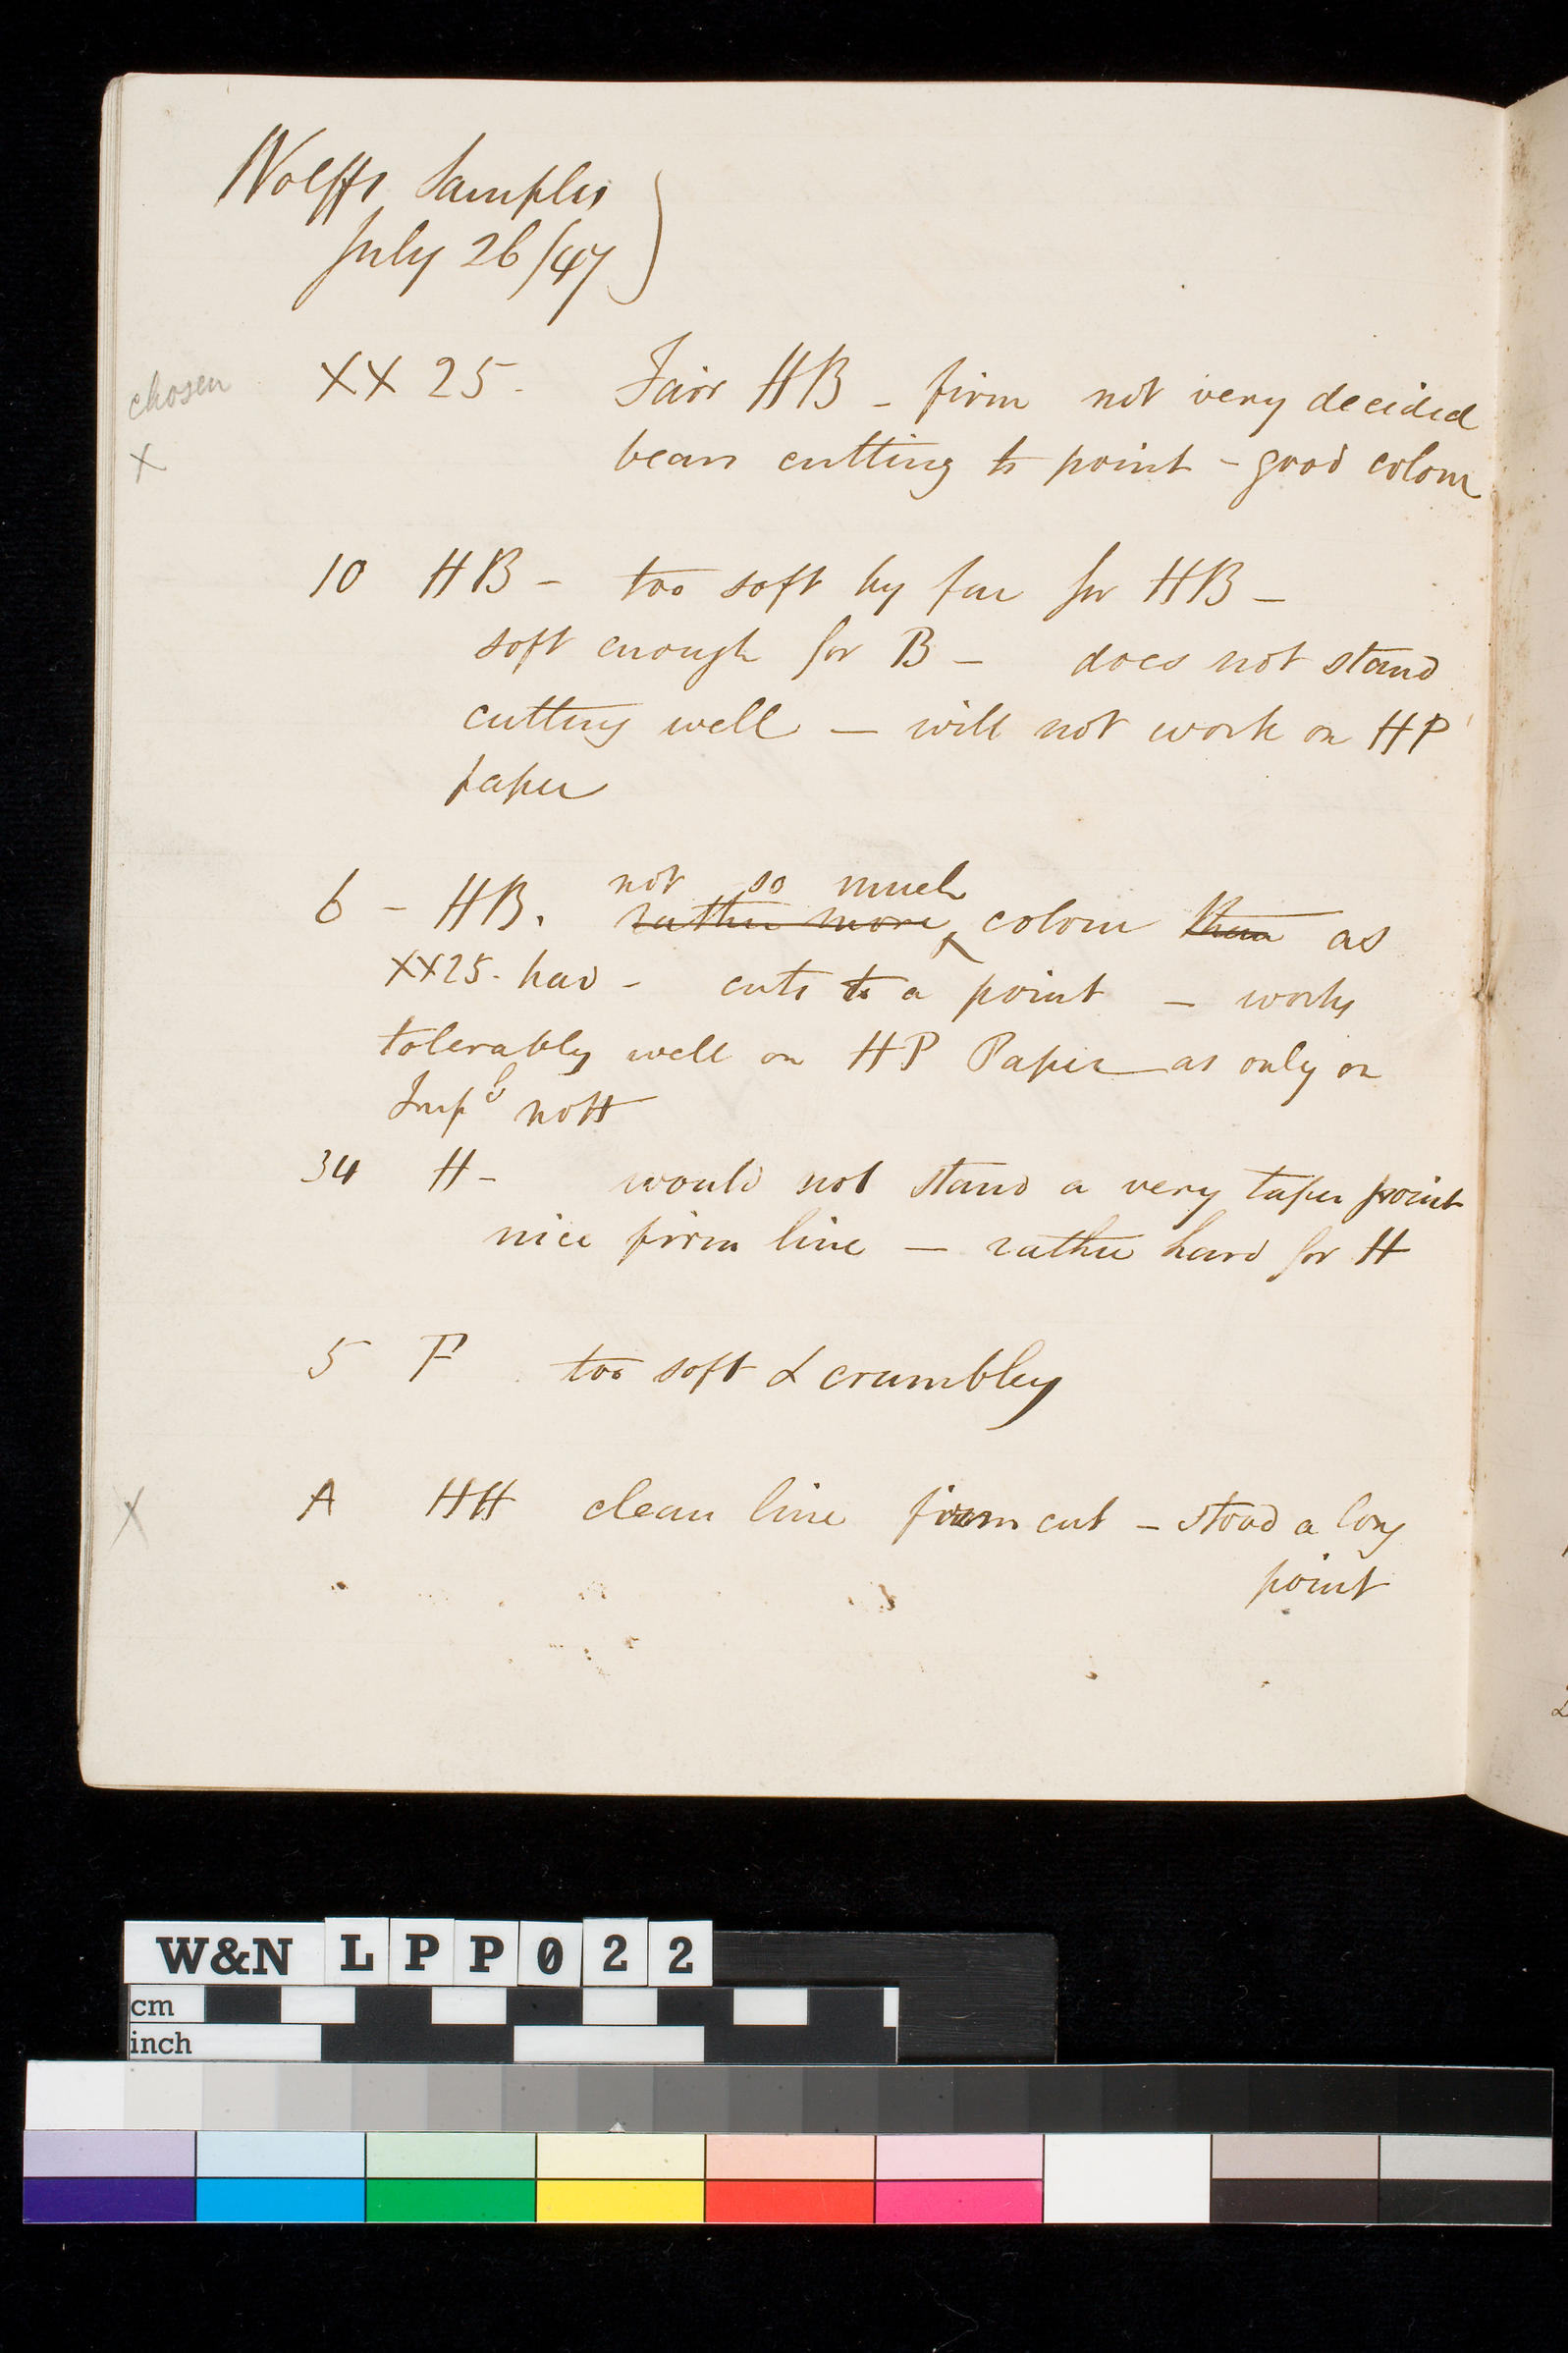 Wolffs Samples
July 26/47
chosen XX 25. Fair HB - firm not very decided
X bears cutting to point - good colour
10 HB - too soft by far for HB -
soft enough for B - does not stand
cutting well - will not work on HP
paper
not so much
6 - HB. rather more colour than as
XX25. had - cuts to a point - works
tolerably well on HP Paper as only on
Impl nott
34 H - would not stand a very taper point
nice firm line - rather hard for H
5 F too soft & crumbley
X A HH clean line firm cut - stood a long
point
W&N LPP022
cm
inch